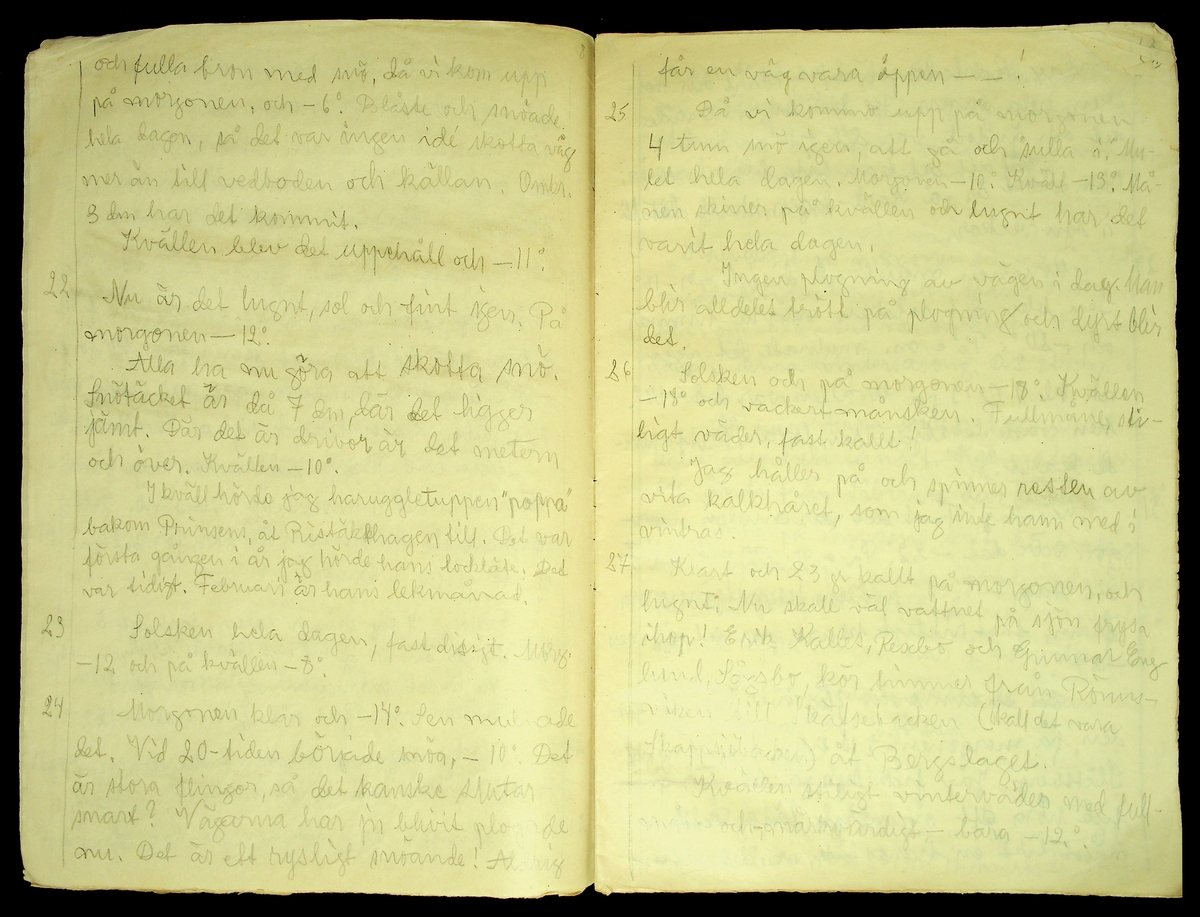 och fulla bron med snö, då vi kom upp
på morgonen, och -6°. Blåste och snöade
hela dagen, så det var ingen idé skotta väg
mer än till vedboden och källan. Omkr.
3 dm har det kommit.
Kvällen blev det uppehåll och -11°.
22 Nu är det lugnt, sol och fint igen. På
morgonen -12°.
Alla ha nu göra att skotta snö.
Snötäcket är då 7 dm, där det ligger
jämt. Där det är drivor är det metern
och över. Kvällen -10°.
I kväll hörde jag haruggletuppen "poppa"
bakom Prinsens, åt hagen till. Det var
första gången i år jag hörde hans lockläte. Det
var tidigt. Februari är hans lekmånad.
23 Solsken hela dagen, fast disigt. Morg.
-12 och på kvällen -8°.
24 Morgonen klar och -14°. Sen mulnade
det. Vid 20-tiden började snöa, -10°. Det
är stora flingor, så det kanske slutar
snart? Vägarna har ju blivit plogade
nu. Det är ett rysligt snöande! Aldrig
får en väg vara öppen - - !
25 Då vi kommo upp på morgonen
4 tum snö igen, att gå och sulla i. Mu-
let hela dagen. Morgonen -10°. Kväll -13°. Må-
nen skiner på kvällen och lugnt har det
varit hela dagen.
Ingen plogning av vägen i dag. Man
blir alldeles trött på plogning och dyrt blir
det.
26 Solsken och på morgonen -18°. Kvällen
-18° och vackert månsken. Fullmåne, sti-
ligt väder, fast kallt!
Jag håller på och spinner resten av
vita kalkhåret, som jag inte hann med i
vintras.
27 Klart och 23 gr kallt på morgonen, och
lugnt. Nu skall väl vattnet på sjön frysa
ihop! Erik Kalles, Rexbo och Gunnar Eng
lund, Sågsbo, kör timmer från Rönns-
viken till (kall det vara
åt Bergslaget.
Kvällen stiligt vinterväder med full-
måne och - märkvärdigt - bara -12°.